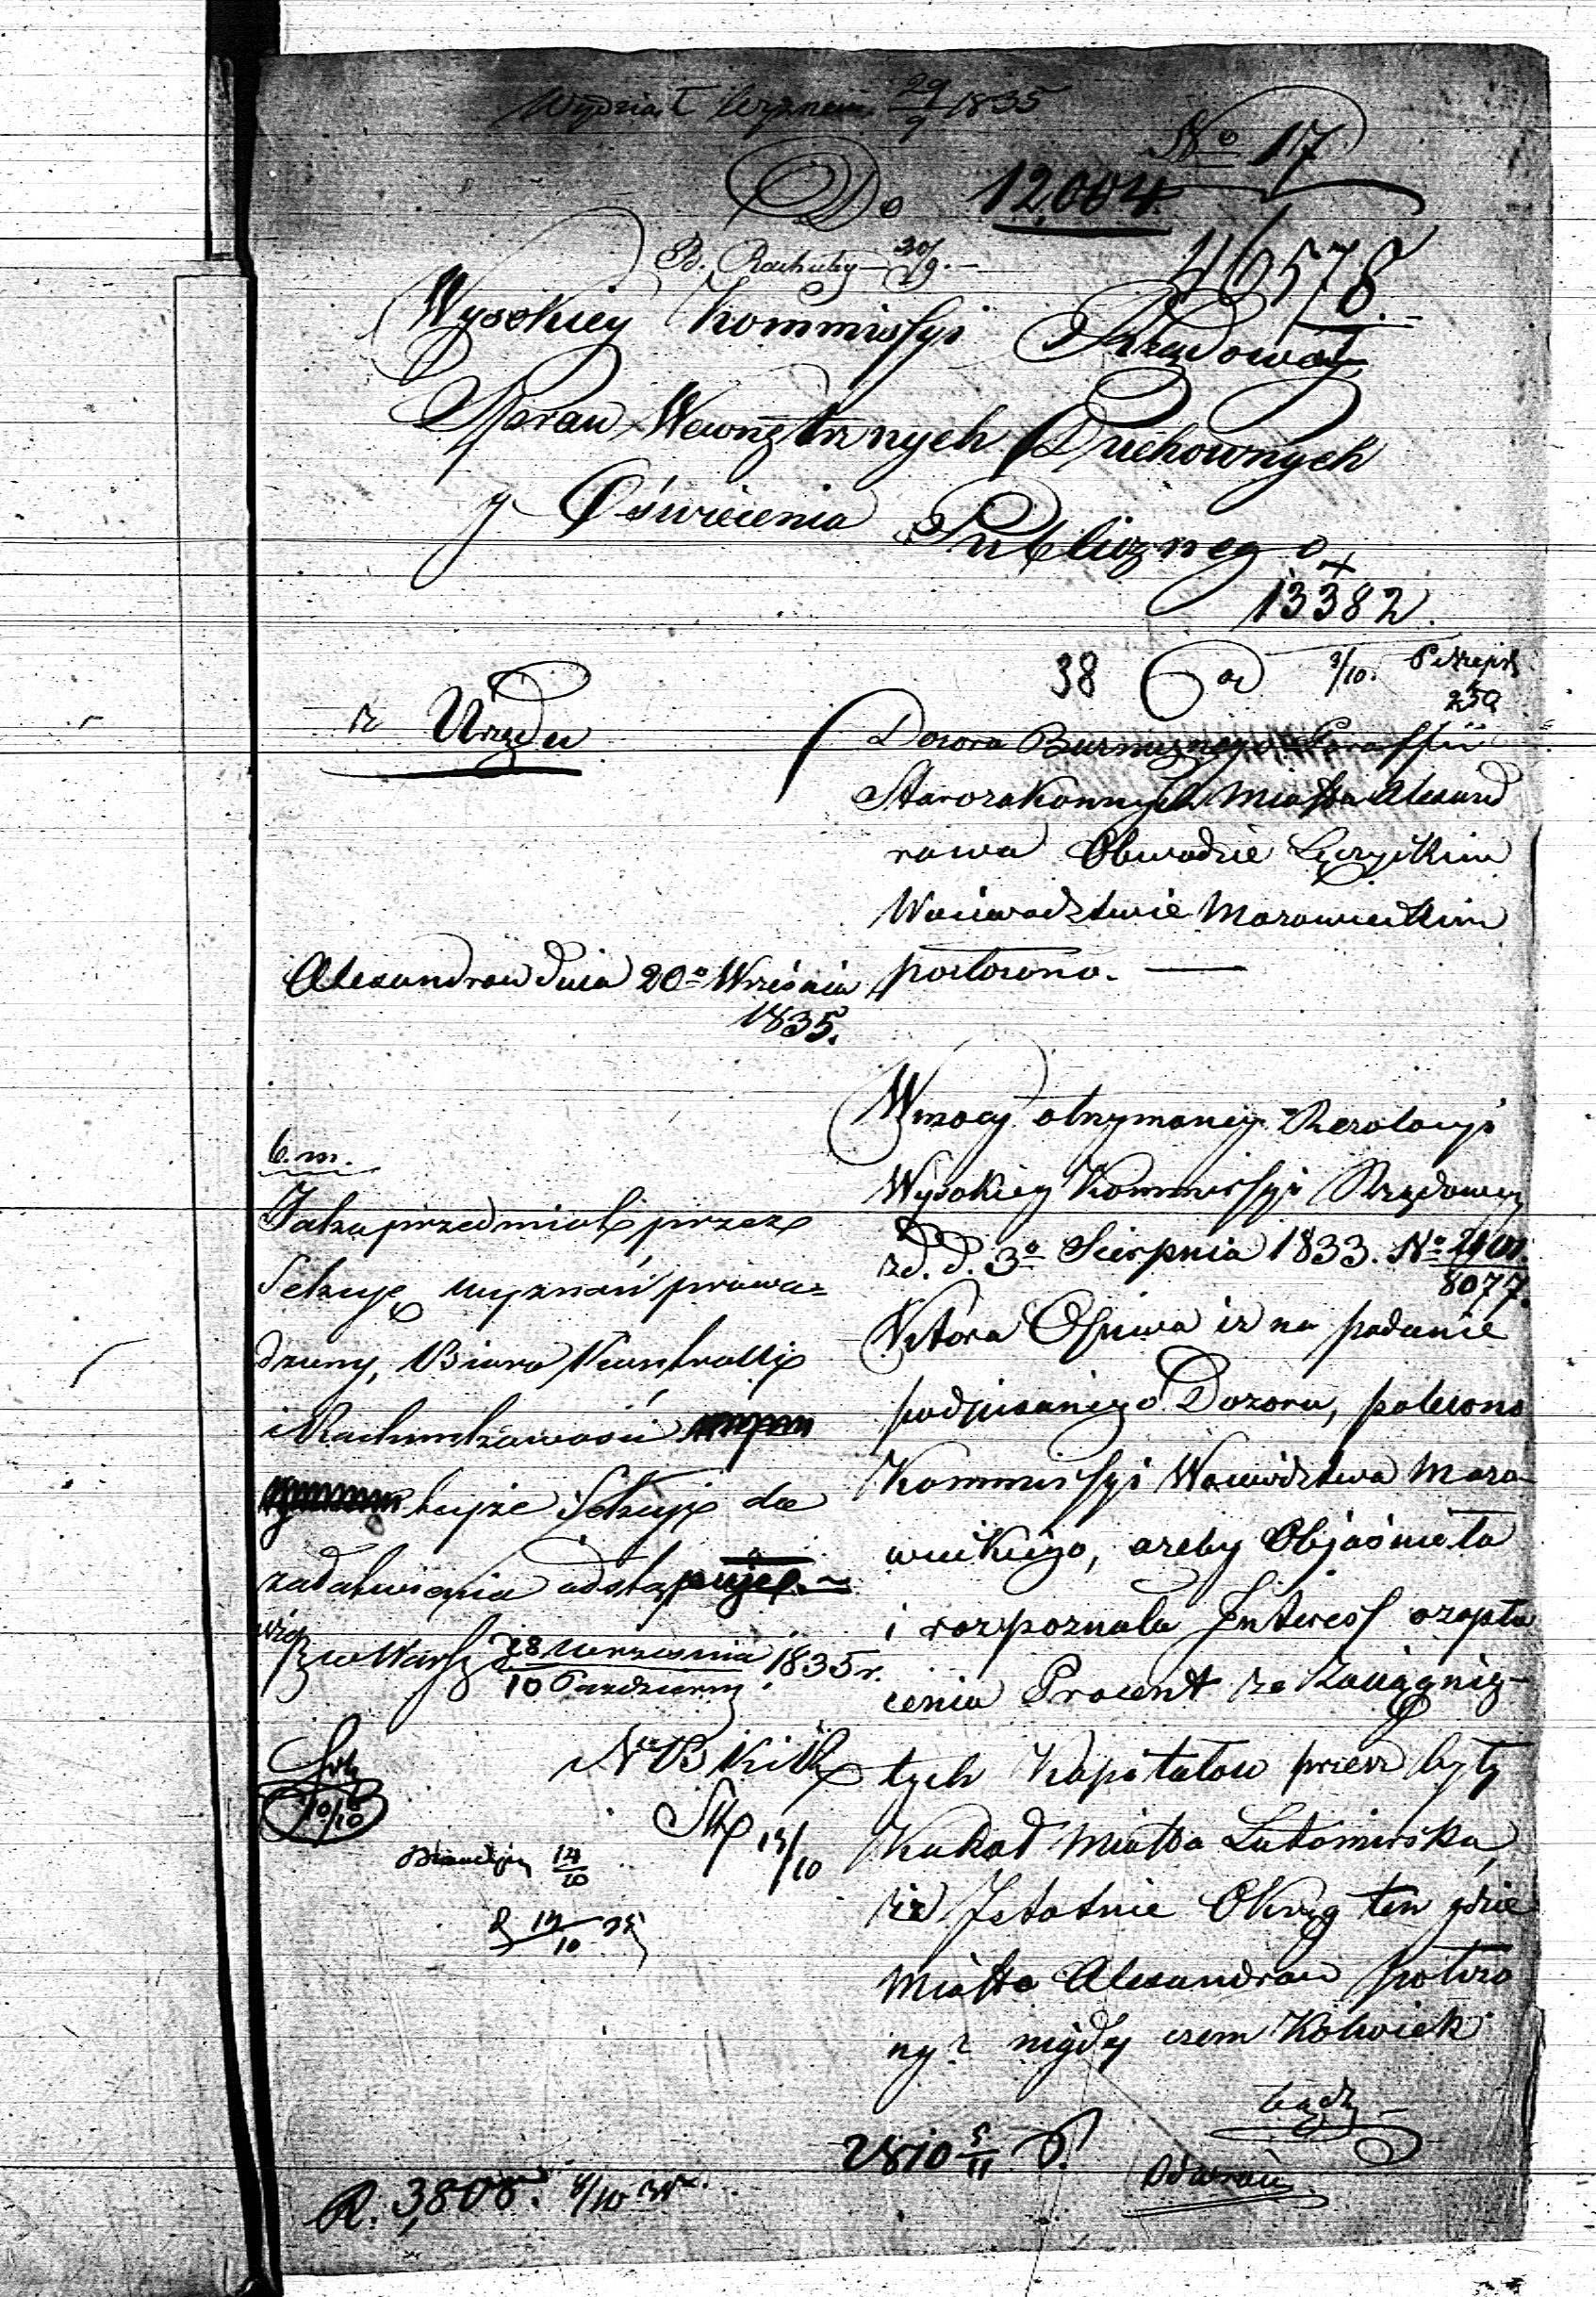 Wydział Wyznań 29/9 1835
No 17
Do 12,004
B. Rachuby 30/9.
46578.
Wysokiey Kommissyi Rządowey
Spraw Wewnętrznych Duchownych
y Oświecenia Publicznego
13382.
38 Od 3/10.
250
z Urzędu
Dozoru Bużnicznego Paraffii
Starozakonnych Miasta Alexand
rowa Obwodzie Łęczyckim
Woiewodztwie Mazowieckim
położono. —
Alexandrow dnia 20o Września
1835.
Wmocy otrzymaney Rezolucyi
Wysokiey Kommissyi Rządowey
zd. d. 3o Sierpnia 1833. No
8077.
Ktora Opiewa iż na podanie
podpisanego Dozoru, polecono
Kommissyi Woiewództwa Mazo
wieckiego, azeby Objaśniła
i rozpoznała Interess ozapła
cenia Procent za Zaciągnię-
tych Kapitałow przez były
Kahał Miasta Lutomirska,
że Istotnie Okręg ten gdzie
Miasto Alexandrow położo
ny? nigdy czem Kolwiek
bądz
b. m.
Jako przedmiot przez
Sekcyę wyznań prowa=
dzony, Biuro Kontrolli
i Rachunkowości
tejże Sekcyi do
załatwienia odstępuje.
w Warsz d 28 Września / 10 Październ. 1835 r.
N B Kith
10/10
14/10
14/10
2810 5/11
R. 3,808. 8/10